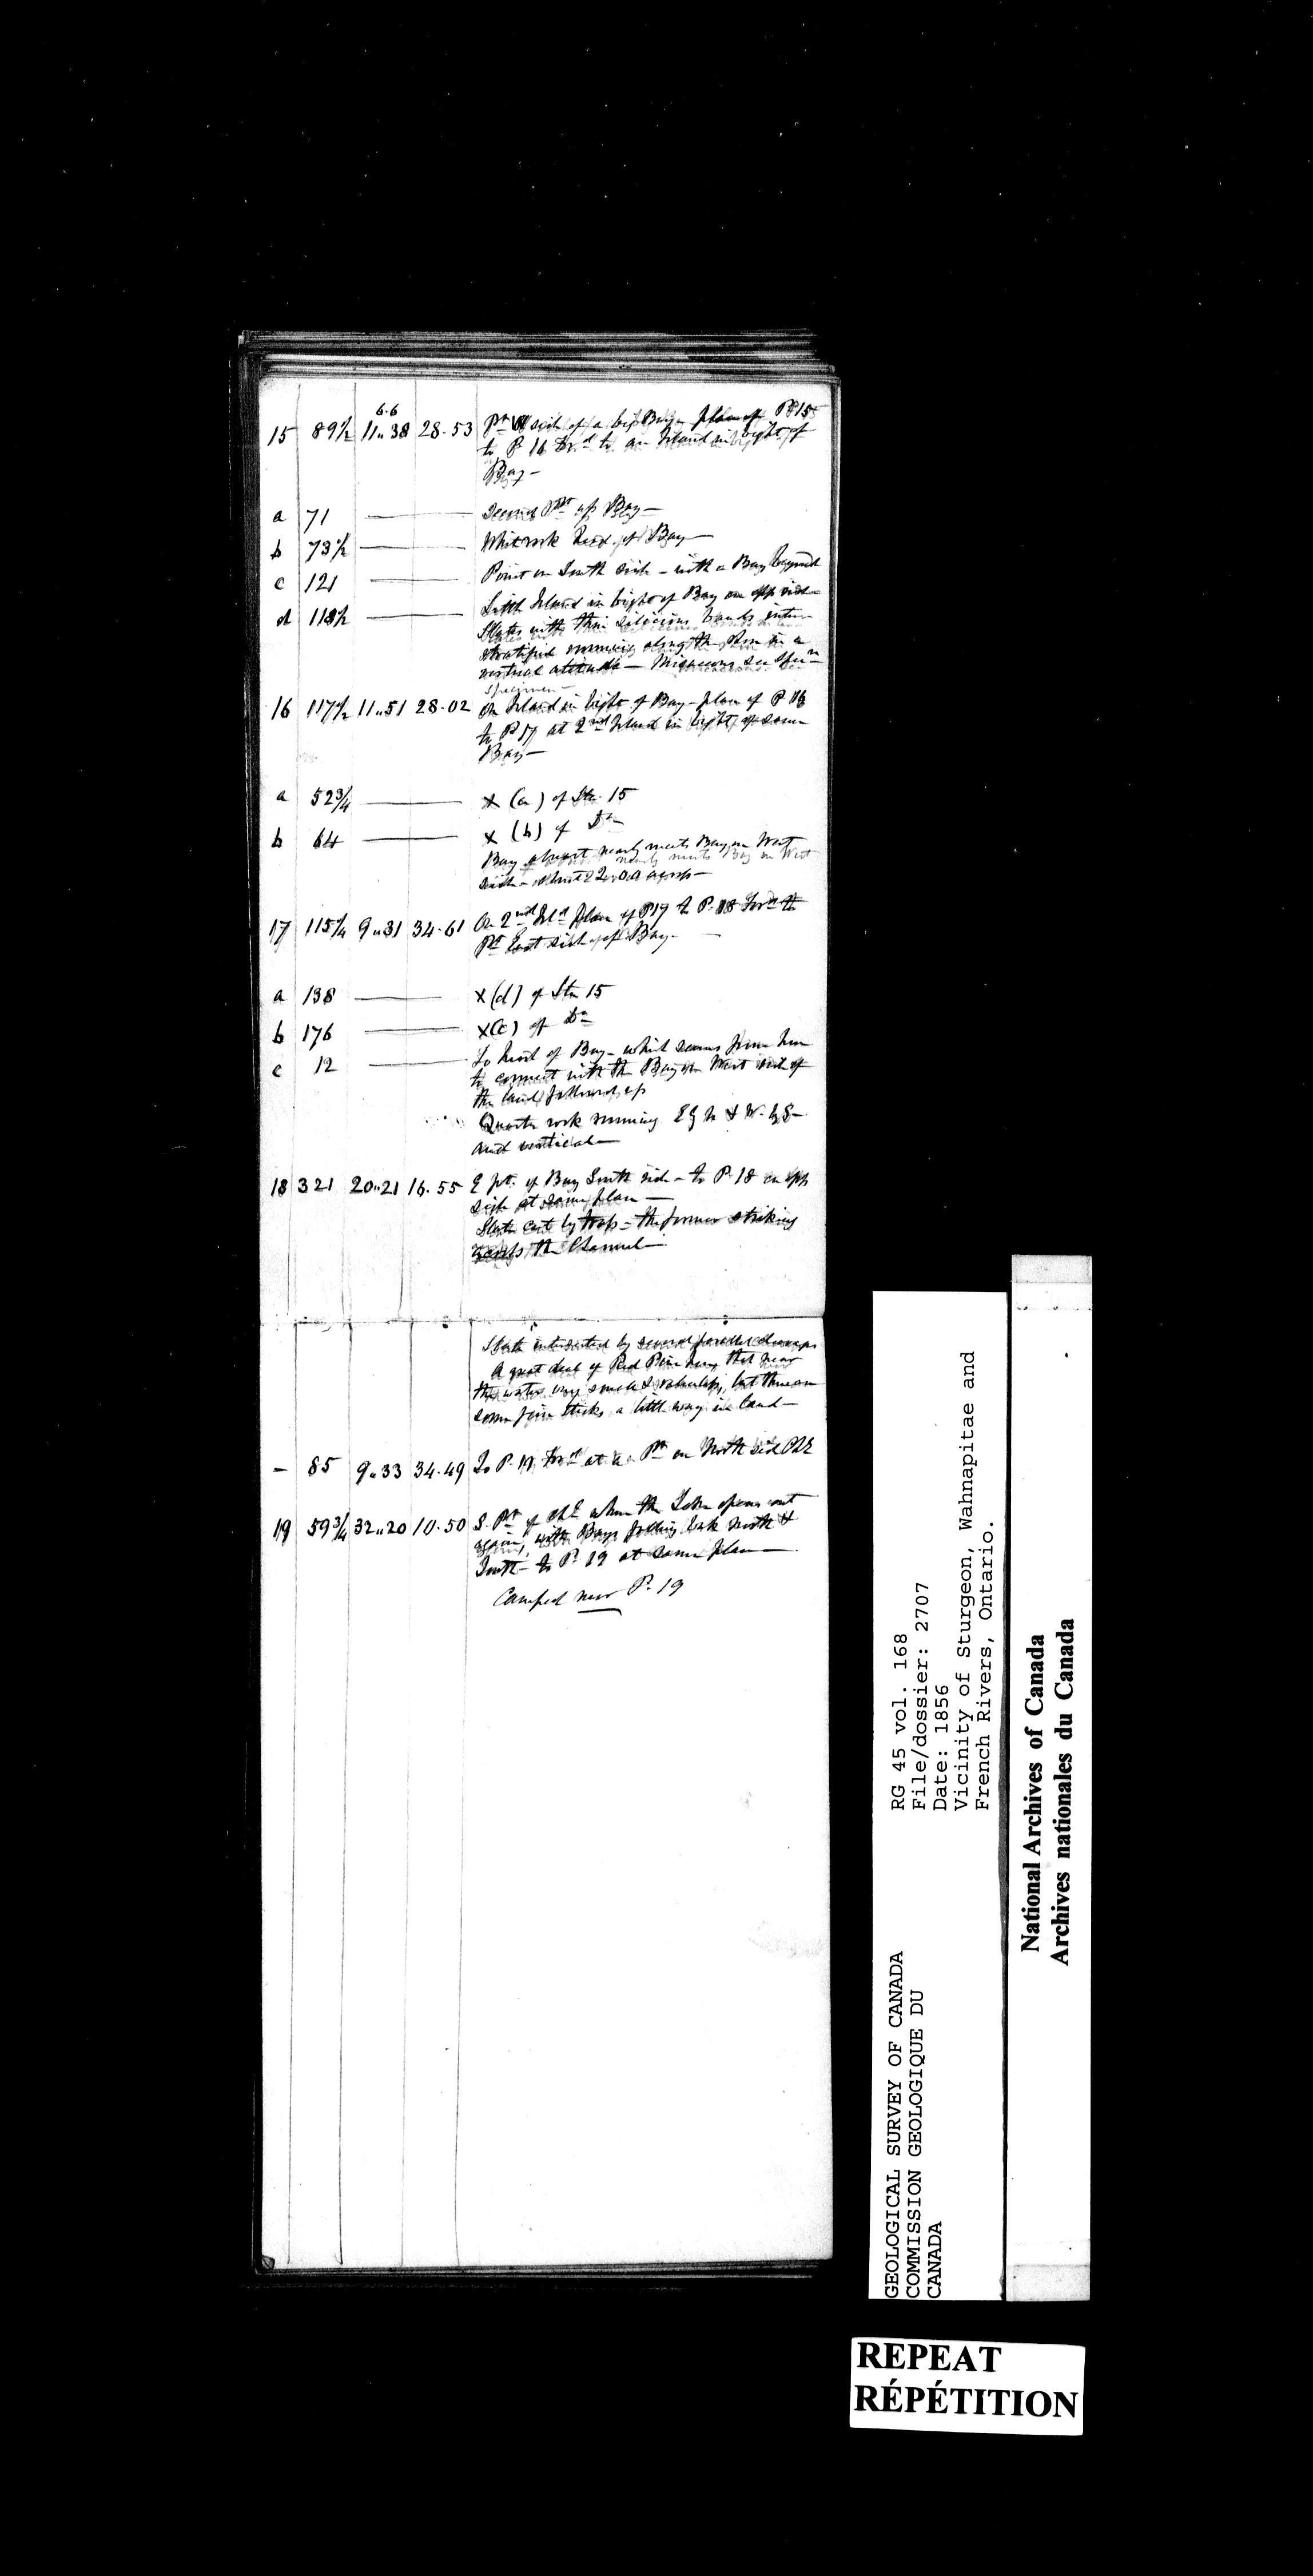 6.6
15 89½ 11..38 28.53 Pt W side of a big Bay - plan of P 15
to P 16 Ford to an Island in bight of
Bay -
a 71 — Second Pt up Bay —
b 73½ — Whiterock Head of Bay —
c 121 — Point on South side - with a Bay beyond
d 118½ — Little Island in bight of Bay on opp side
Slates with thin silicious bands inter
stratified running along the in a
vertical atitude — see
specimen —
16 117½ 11..51 28.02 On Island in bight of Bay - plan of P 16
to P 17 at 2nd Island in bight of same
Bay —
a 52¾ — x (a) of Stn 15
b 64 — x (b) of Do
Bay almost nearly meets Bay on West
side - about across —
17 115¼ 9..31 34.61 On 2nd Isld plan of P 17 to P. 18 Ford to
Pt East side of Bay —
a 138 — x (d) of Stn 15
b 176 — x (c) of Do
c 12 — To head of Bay - which seems from here
to connect with the Bay on West side of
the land followed up
Quartz rock running E & W
and vertical —
18 321 20..21 16.55 E pt. of Bay South side - to P. 18 on opp
side at same plan —
Slate cut by trap - the former striking
the Channel —
Slate intersected by several parallel
A great deal of Red Pine here, that near
the water very small & valueless, but there are
some fine sticks a little way in land —
- 85 9..33 34.49 To P. Ford at a Pt on North side Chl
19 59¾ 32..20 10.50 S. Pt of Chl where the Lake opens out
again, with Bays falling back North &
South - to P. 19 at same plan —
Camped near P. 19
RG 45 vol. 168
File/dossier: 2707
Date: 1856
Vicinity of Sturgeon, Wahnapitae and
French Rivers, Ontario.
GEOLOGICAL SURVEY OF CANADA
COMMISSION GEOLOGIQUE DU
CANADA
National Archives of Canada
Archives nationales du Canada
REPEAT
RÉPÉTITION